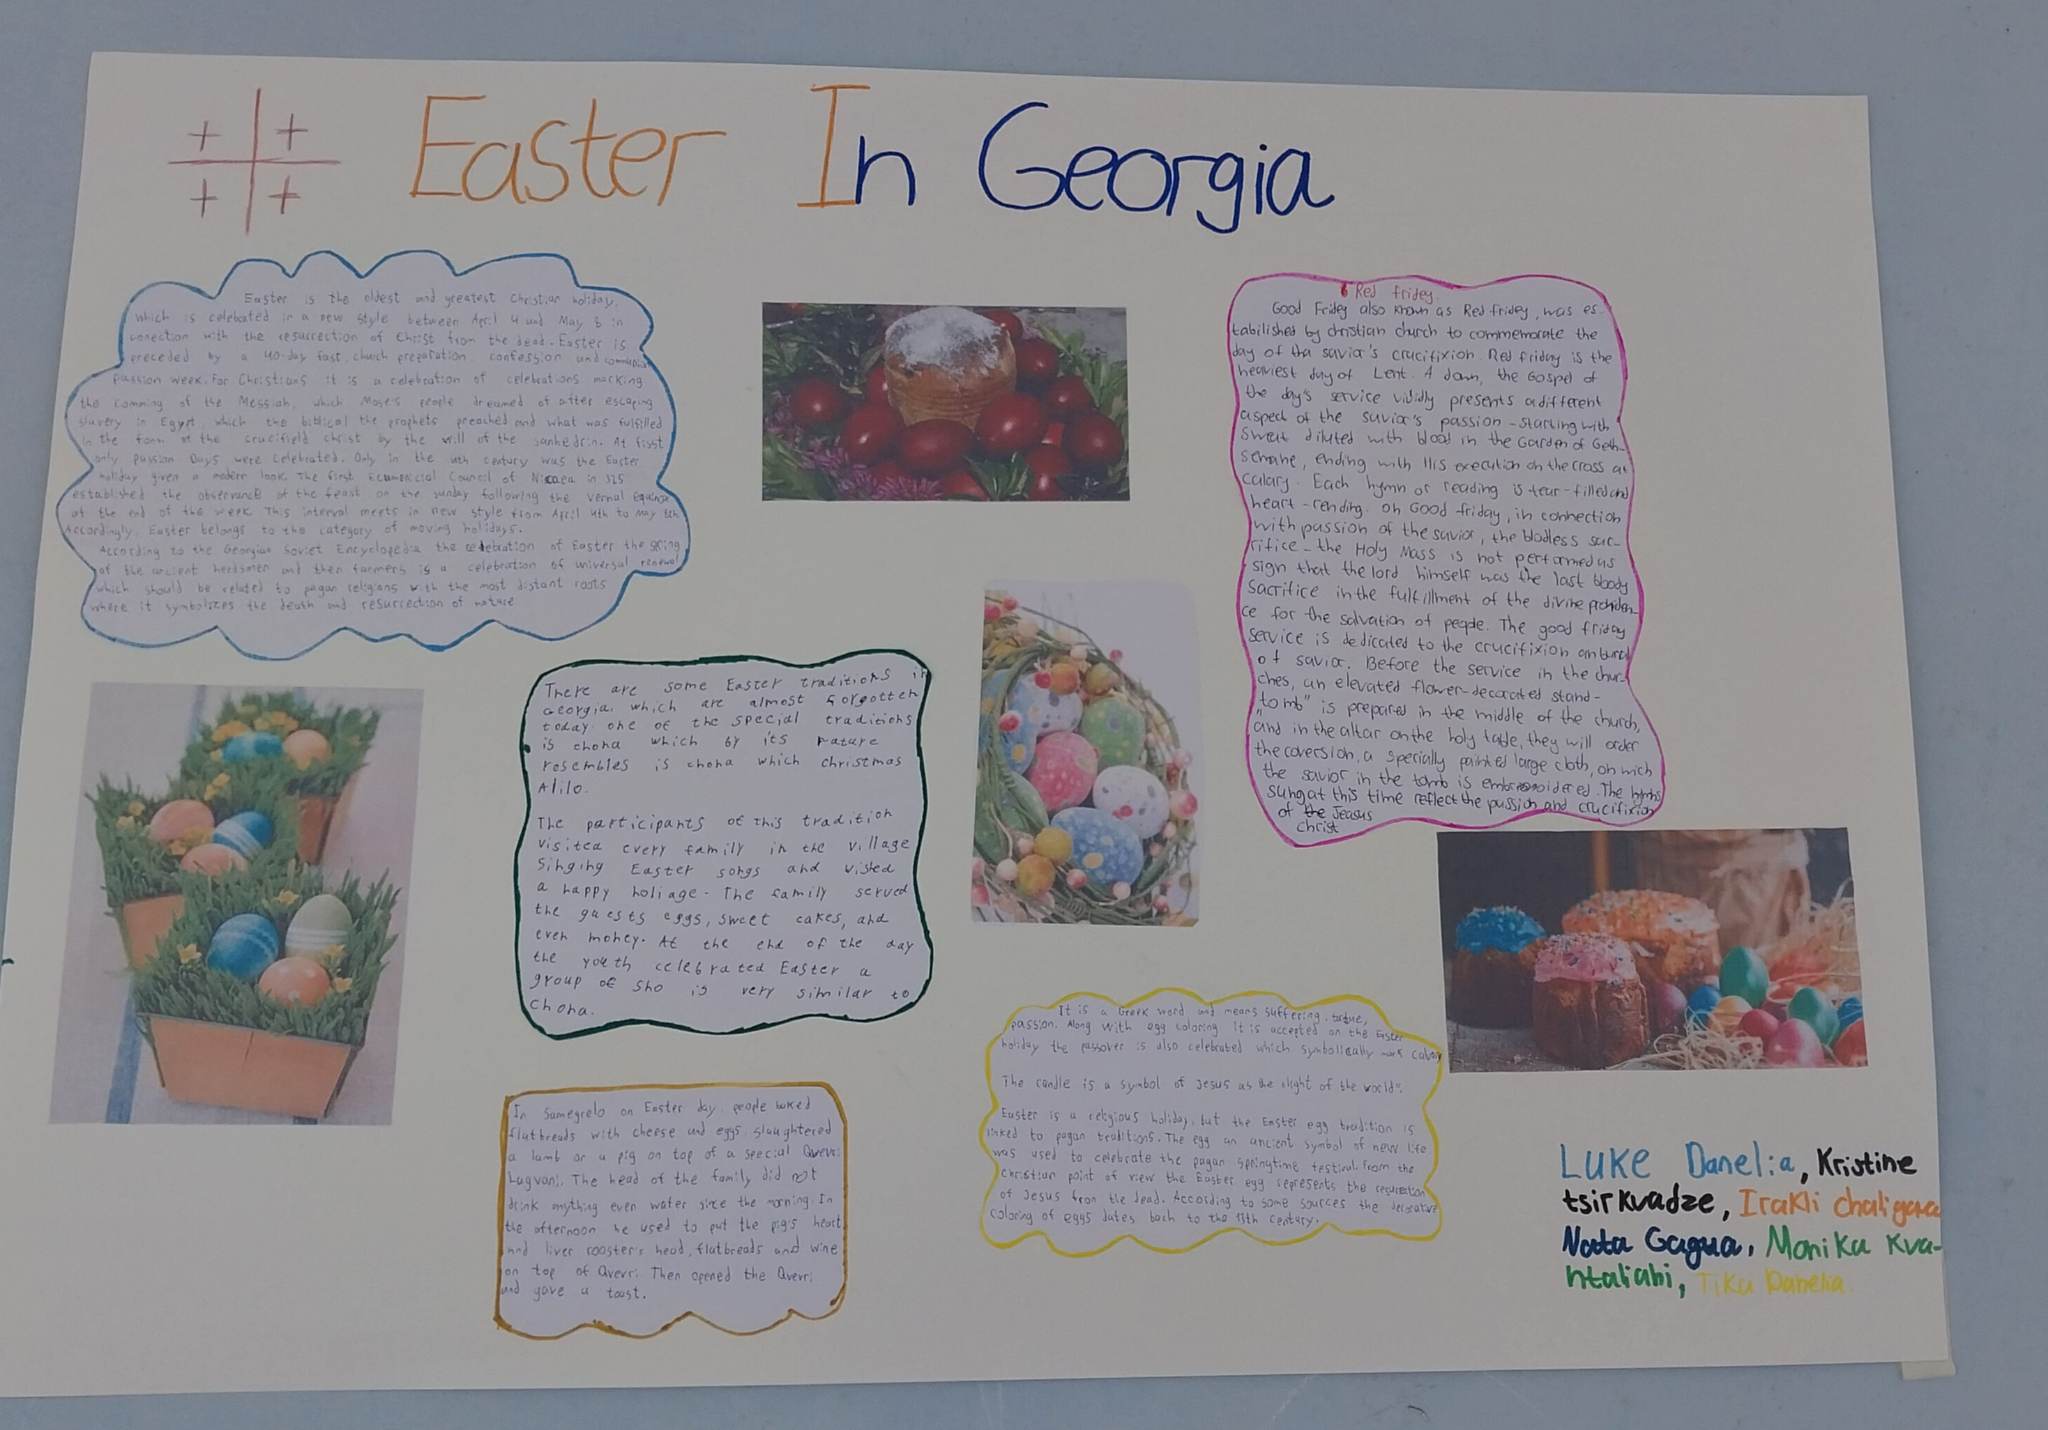 Easter In Georgia
Easter is the oldest and greatest Christian holiday,
which is celebrated in a new style between April 4 and May 8 in
conection with the resurrection of Christ from the dead. Easter is
preceded by a 40-day fast, church preparation, confession and communion
passion week. For Christians it is a celebration of celebrations marking
the comming of the Messiah, which Mose's people dreamed of after escaping
slavery in Egypt, which the biblical the prophets preached and what was fulfilled
in the form of the crucifield christ by the will of the sanhedrin. At first
only passion Days were celebrated. Only in the 4th century was the Easter
holiday given a modern look. The first Ecumencial Council of Nicaea in 325
established the observance of the feast on the sunday following the vernal Equinox
at the end of the week. This interval meets in new style from April 4th to May 8th
Accordingly, Easter belongs to the category of moving holidays.
According to the Georgian Soviet Encyclopedia the celebration of Easter the spring
of the ancient herdsmen and then farmers is a celebration of universal renewal
which should be related to pagan religions with the most distant roots
where it symbolizes the death and resurrection of nature
There are some Easter traditions in
Georgia, which are almost forgotten
today. one of the special traditions
is chona which by its nature
resembles is chona which christmas
Alilo.
The participants of this tradition
visited every family in the village
singing Easter songs and visted
a happy holiage. The family served
the guests eggs, sweet cakes, and
even money. At the end of the day
the youth celebrated Easter a
group of sho is very similar to
chona.
In Samegrelo on Easter day, people baked
flatbreads with cheese and eggs slaughtered
a lamb or a pig on top of a special Qvevri
Lagvani. The head of the family did not
drink anything even water since the morning. In
the afternoon he used to put the pig's heart
and liver rooster's head, flatbreads and wine
on top of Qvevri. Then opened the Qvevri
and gave a toast.
It is a Greek word and means suffering,
passion. Along with egg coloring it is accepted on the Easter
holiday the passover is also celebrated which symbolically mark calvary
The candle is a symbol of Jesus as the "light of the world".
Easter is a religious holiday, but the Easter egg tradition is
linked to pagan traditions. The egg an ancient symbol of new life
was used to celebrate the pagan springtime festival. from the
christian point of view the Easter egg represents the resurrection
of Jesus from the dead. According to some sources the decorative
coloring of eggs dates back to the 13th century.
Red friday.
Good Friday also known as Red friday, was es-
tabilished by christian church to commemorate the
day of tha savior's crucifixion Red friday is the
heaviest day of Lent. A dawn, the Gospel of
the day's service vididly presents a different
aspect of the savior's passion - starting with
sweat diluted with blood in the Garden of Geth-
semane, ending with His execution on the cross at
Calary. Each hymn or reading is tear-filled and
heart-rending. on Good friday, in connection
with passion of the savior, the blodless sac-
rifice - the Holy Mass is not performed as
sign that the lord himself was the last bloody
sacrifice in the fulfillment of the divine providen-
ce for the salvation of people. The good friday
service is dedicated to the crucifixion an burial
of savior. Before the service in the chur-
ches, an elevated flower-decorated stand-
"tomb" is prepared in the middle of the church,
and in the altar on the holy table, they will order
the coversion, a specially painted large cloth, on wich
the savior in the tomb is embroidered. The hymns
sung at this time reflect the passion and crucifixion
of the Jeasus
christ
Luke Danelia, Kristine
tsirkvadze, Irakli chaligava
Nata Gagua, Monika kva-
ntaliani, Tiku Danelia.